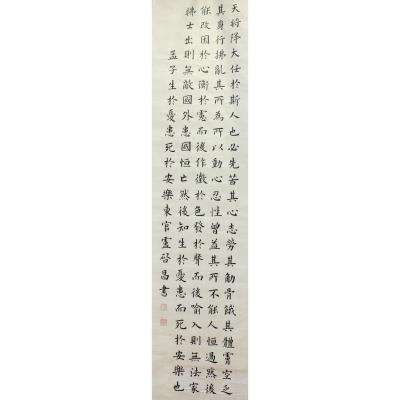 天將降大任於斯人也必先苦其心志勞其筋骨餓其體膚空乏
其身行拂亂其所為所以動心忍性曾益其所不能人恒過然後
能改困於心衡於慮而後作徵於色發於聲而後喻入則無法家
拂士出則無敵國外患國恒亡然後知生於憂患而死於安樂也
孟子生於憂患死於安樂東官盧啓昌書